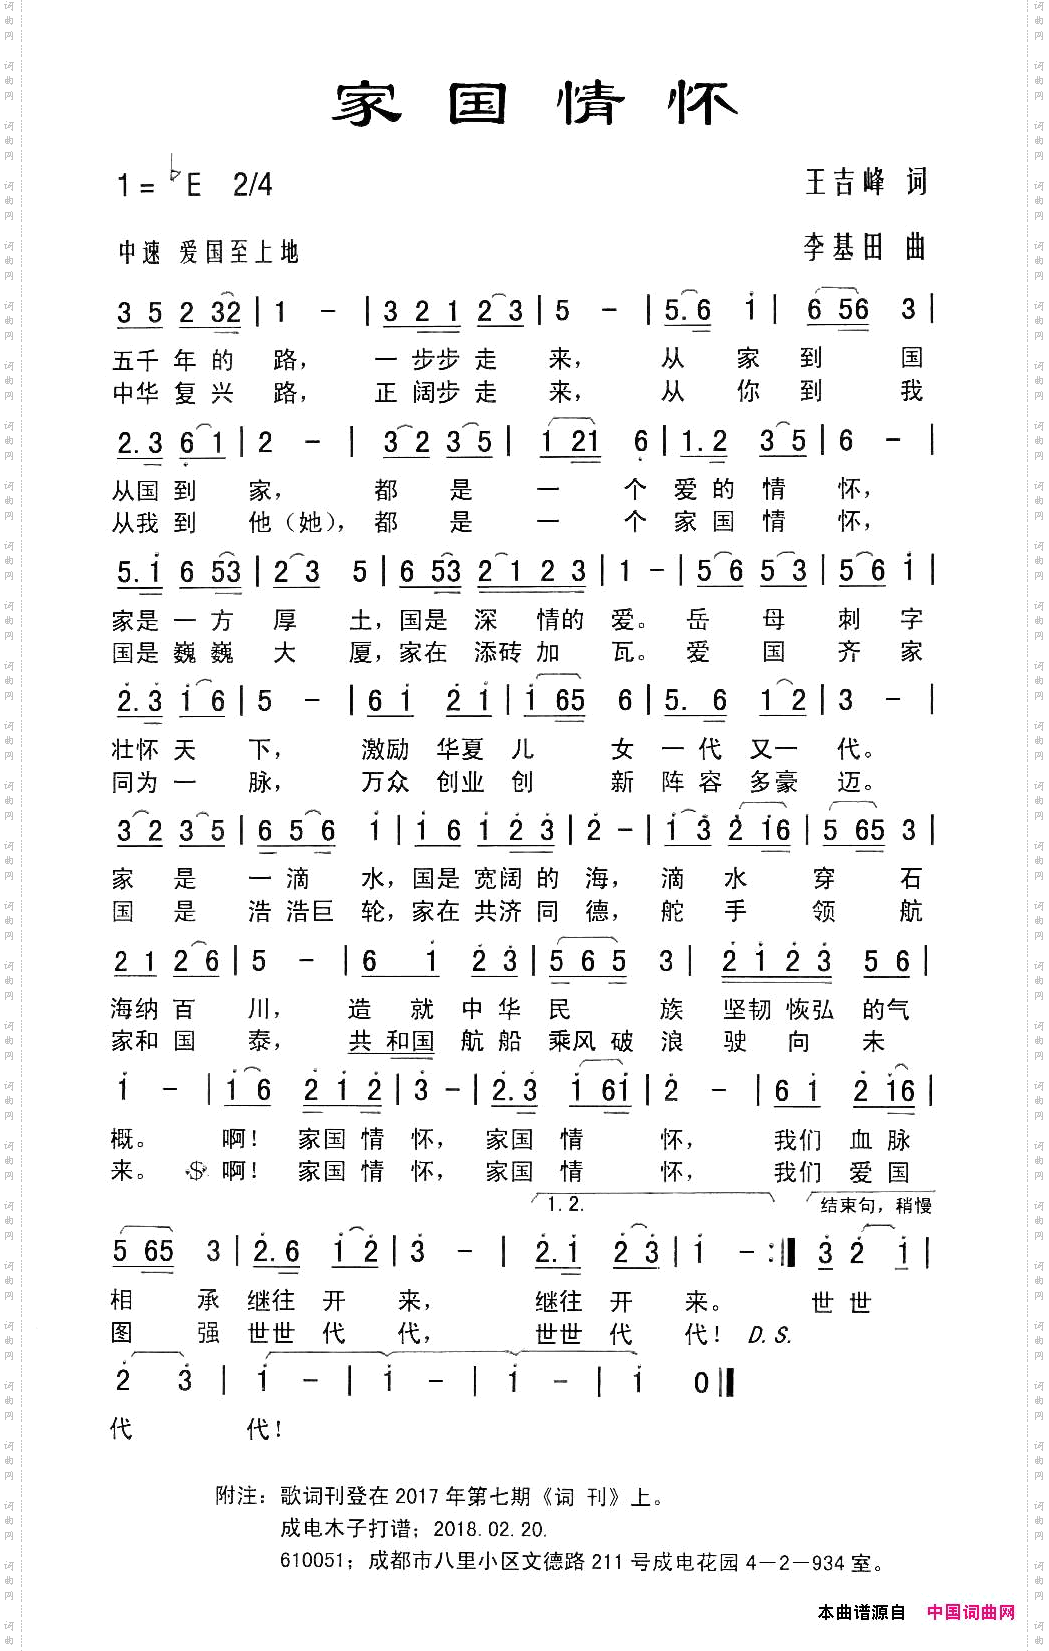 家国情怀
1=♭E 2/4
王吉峰 词
中速 爱国至上地
李基田 曲
3 5 2 32 | 1 － | 3 2 1 2 3 | 5 － | 5. 6 i | 6 56 3 |
五千年的 路， 一步步走 来， 从 家 到 国
中华复兴 路， 正阔步走 来， 从 你 到 我
2. 3 6 1 | 2 － | 3 2 3 5 | 1 21 6 | 1. 2 3 5 | 6 － |
从国到 家， 都 是 一 个 爱的情 怀，
从我到 他（她）， 都 是 一 个 家国情 怀，
5. i 6 53 | 2 3 5 | 6 53 2 1 2 3 | 1 － | 5 6 5 3 | 5 6 i |
家是一方 厚 土，国是 深 情的 爱。 岳 母 刺 字
国是巍巍 大 厦，家在 添砖加 瓦。 爱 国 齐 家
2. 3 i 6 | 5 － | 6 i 2 i | i 65 6 | 5. 6 1 2 | 3 － |
壮怀天 下， 激励 华夏 儿 女 一代又一 代。
同为一 脉， 万众 创业 创 新 阵容多豪 迈。
3 2 3 5 | 6 5 6 i | i 6 i 2 3 | 2 － | i 3 2 i6 | 5 65 3 |
家 是 一滴 水，国是 宽阔的 海， 滴 水 穿 石
国 是 浩浩巨 轮，家在 共济同 德， 舵 手 领 航
2 1 2 6 | 5 － | 6 i 2 3 | 5 6 5 3 | 2 i 2 3 5 6 |
海纳百 川， 造 就 中华 民 族 坚韧恢弘 的气
家和国 泰， 共和国 航船 乘风破 浪 驶 向 未
i － | i 6 2 i 2 | 3 － | 2. 3 i 6i | 2 － | 6 i 2 i6 |
概。 啊！ 家国情 怀， 家国 情 怀， 我们 血脉
来。 𝄋啊！ 家国情 怀， 家国 情 怀， 我们 爱国
1. 2. 结束句，稍慢
5 65 3 | 2. 6 i 2 | 3 － | 2. i 2 3 | i － :‖ 3 2 i |
相 承 继往 开 来， 继往 开 来。 世世
图 强 世世 代 代， 世世 代 代！ D.S.
2 3 | i － | i － | i － | i 0 ‖
代 代！
附注：歌词刊登在2017年第七期《词 刊》上。
成电木子打谱；2018.02.20.
610051；成都市八里小区文德路211号成电花园4－2－934室。
本曲谱源自 中国词曲网